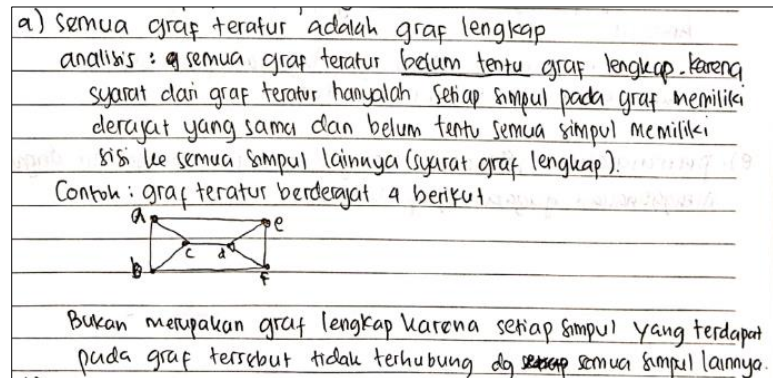 a) Semua graf teratur adalah graf lengkap
analisis : semua graf teratur belum tentu graf lengkap. Karena
syarat dari graf teratur hanyalah setiap simpul pada graf memiliki
derajat yang sama dan belum tentu semua simpul memiliki
sisi ke semua simpul lainnya (syarat graf lengkap).
Contoh : graf teratur berderajat 4 berikut
a e
c d
b f
Bukan merupakan graf lengkap karena setiap simpul yang terdapat
pada graf tersebut tidak terhubung dg semua simpul lainnya.